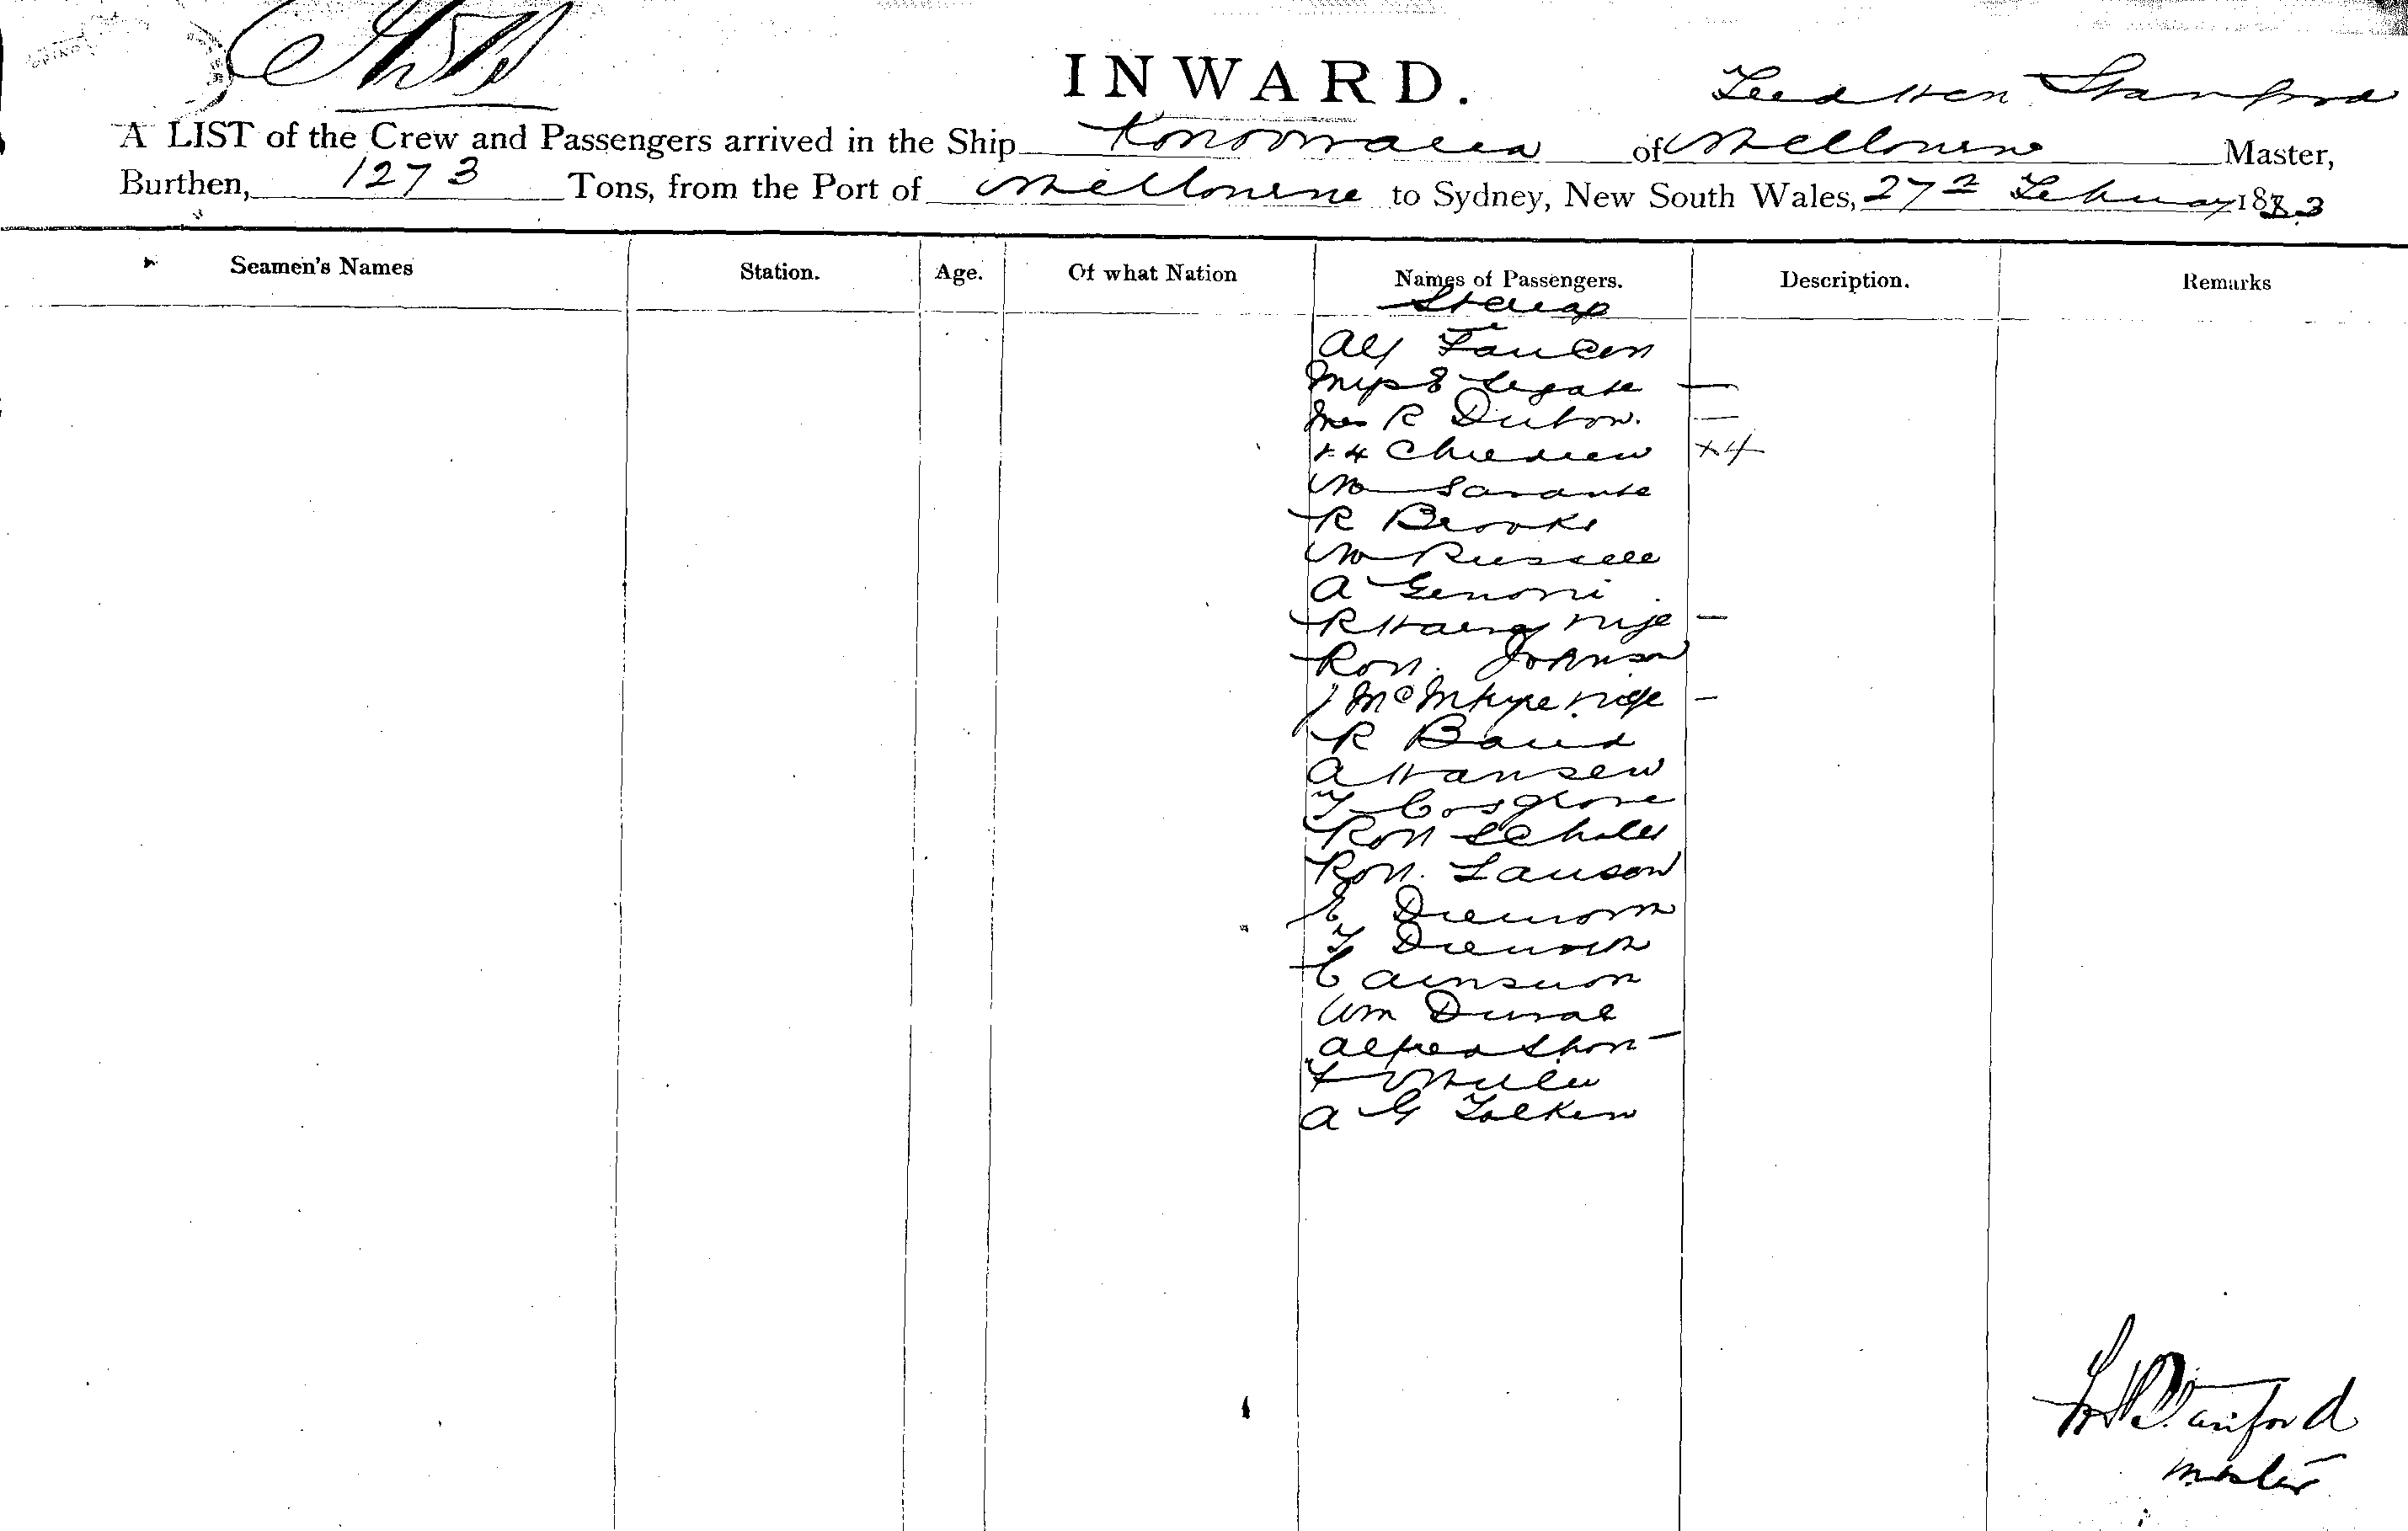 INWARD.
Fred Hen Stanford
A LIST of the Crew and Passengers arrived in the Ship Konoowarra of Melbourne Master,
Burthen, 1273 Tons, from the Port of Melbourne to Sydney, New South Wales, 27 February 1883
Seamen's Names Station. Age. Of what Nation Names of Passengers. Description. Remarks
Steerage
Alf
Miss E Legate —
Mrs R —
+ 4 Children +4
Wm
R Brooks
Wm Russell
A Genoni
R Harvey wife —
Ron. Johnson
J McIntyre wife —
R Baird
A Hansen
T Cosgrove
Ron
Ron. Lawson
E
T
C
Wm Duval
Alfred Short
F
A G
F H Stanford
Master